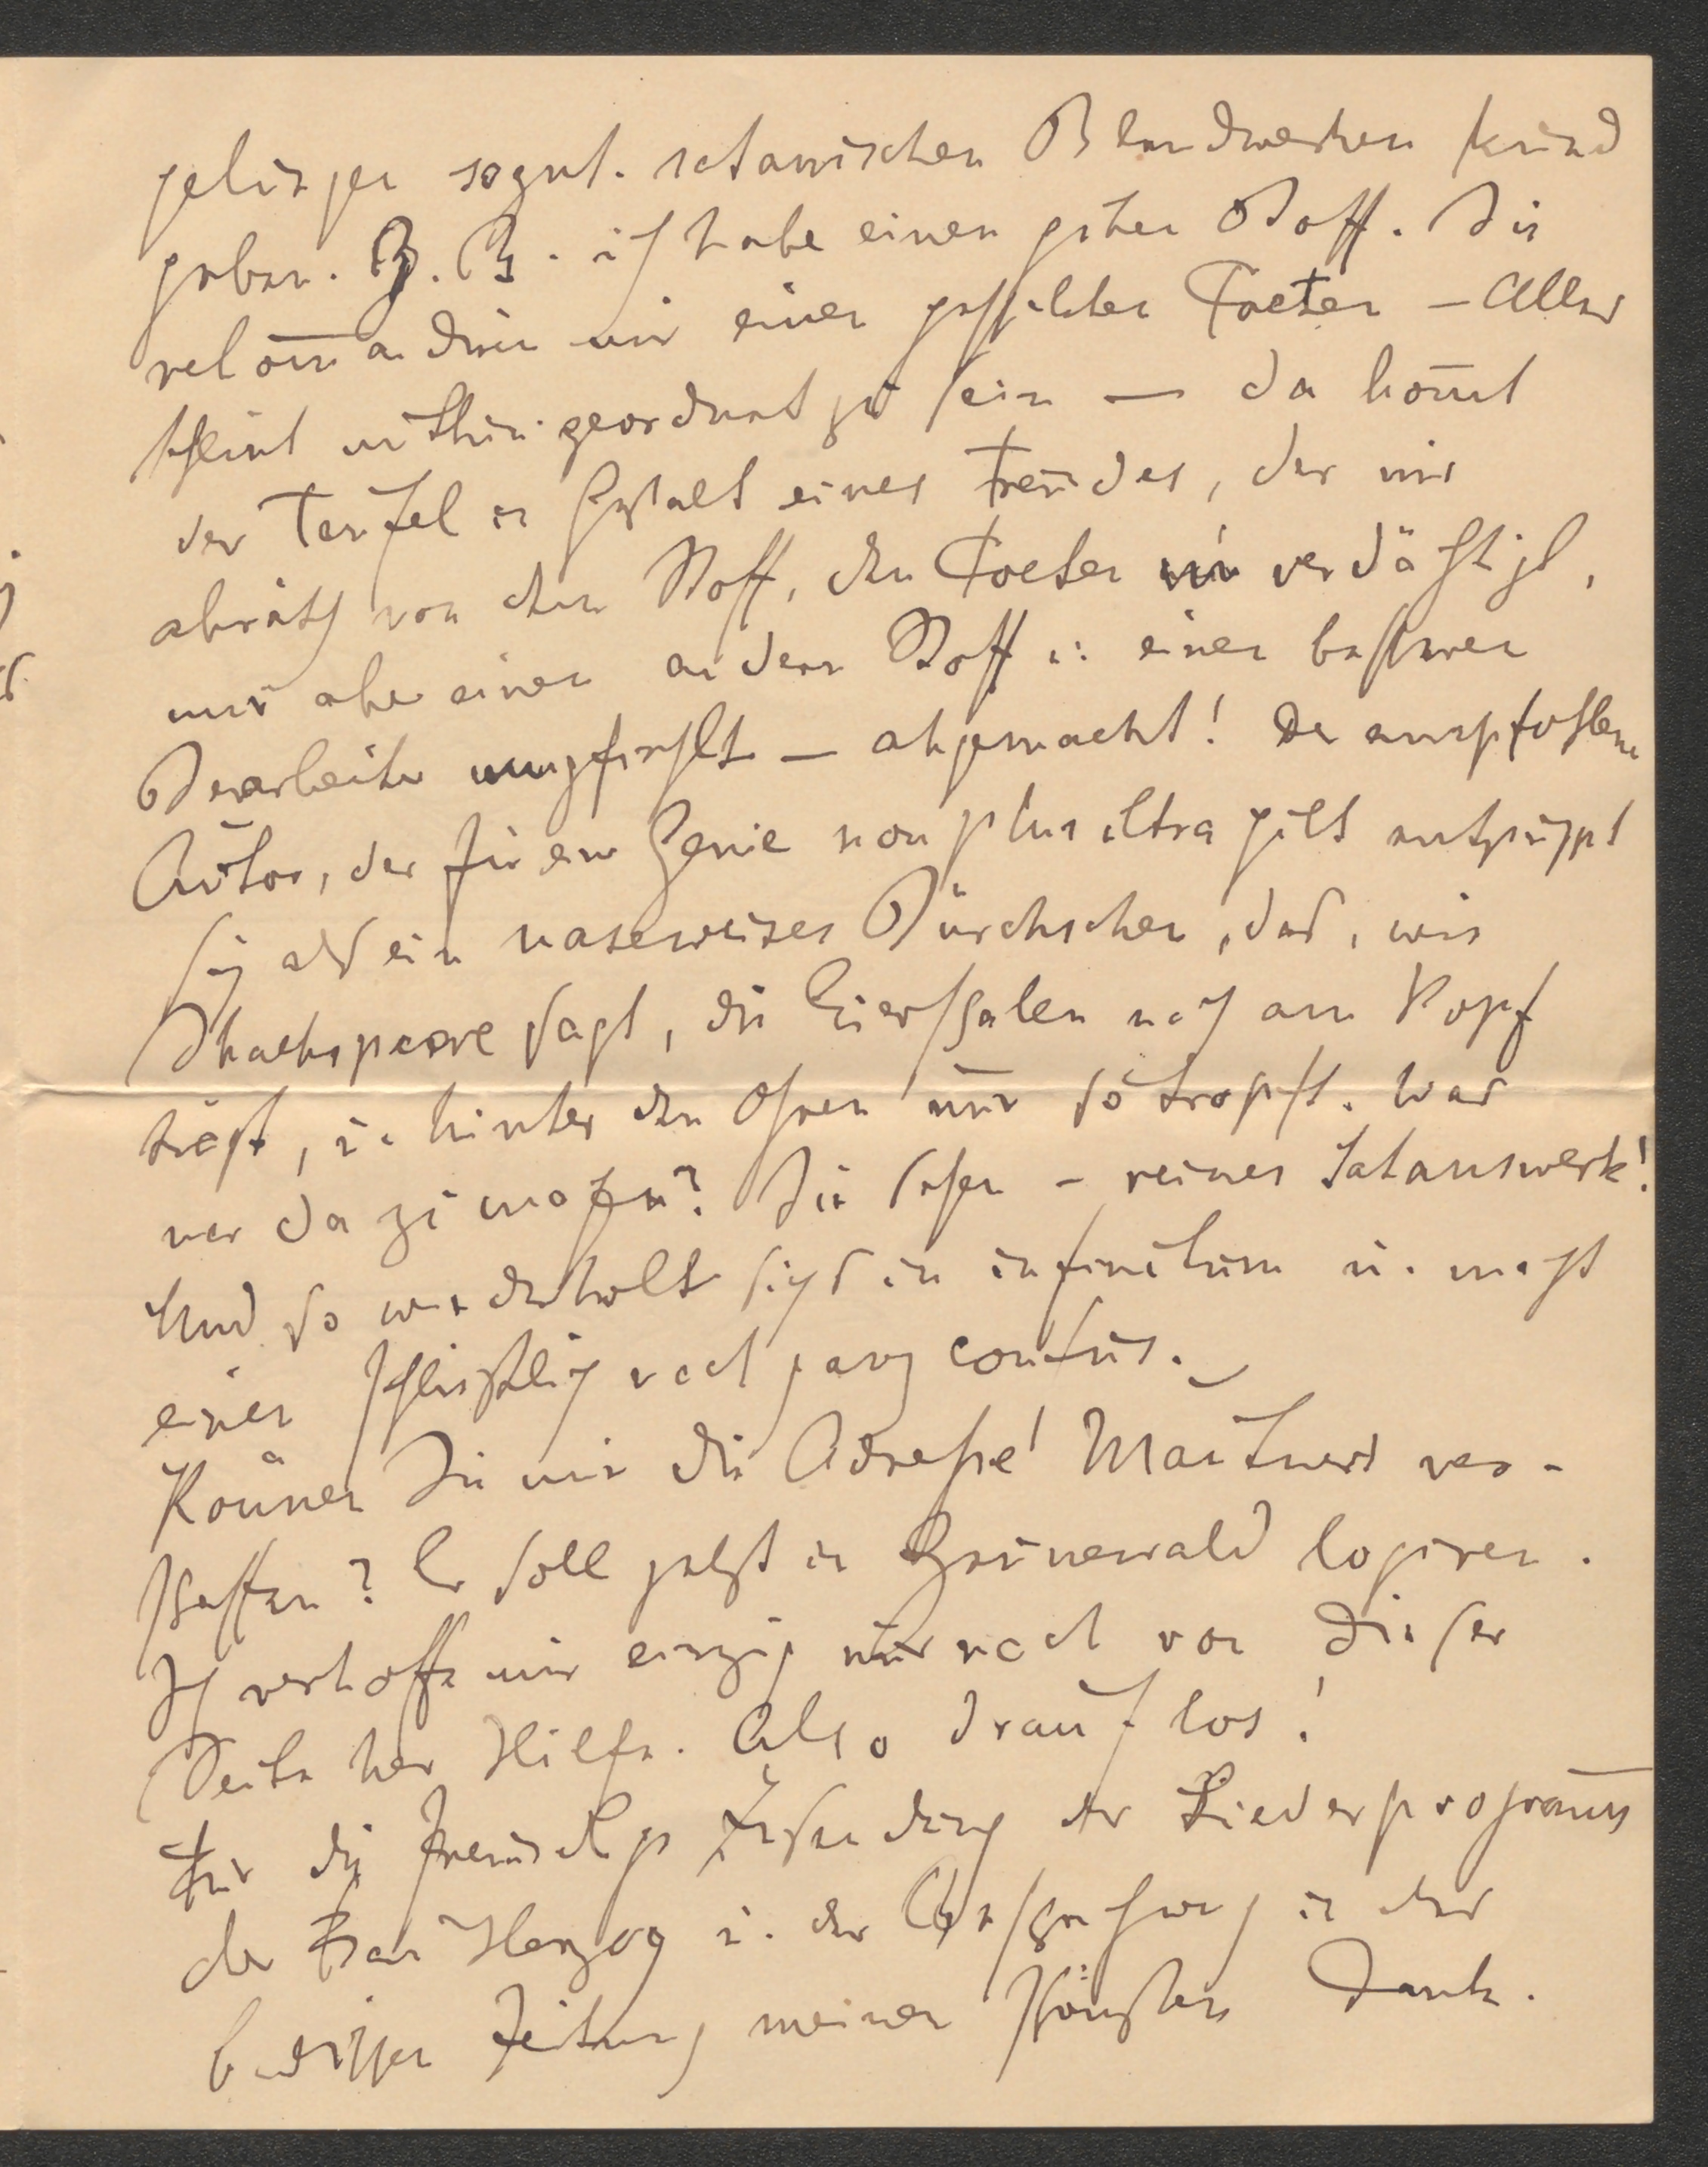 gelinger sogent. satanischen Blendwerken kund
geben. Z. B. ich habe einen guten Stoff. Sie
recom̄andiren mir einen geschickten Poeten – Alles
scheint mithin geordnet zu sein — da kom̄t
der Teufel in Gestalt eines Freundes, der mir
abräth von dem Stoff, den Poeten mir verdächtigt,
mir aber einen andern Stoff u: einen besseren
Bearbeiter empfiehlt – abgemacht! Der empfohlene
Autor, der für ein Genie non plus ultra gilt entpuppt
sich als ein naseweises Bürschchen, das, wie
Shakespeare sagt, die Eierschalen noch am Kopf
trägt, u. hinter den Ohren nur so tropft. Was
nun da zu machen? Sie sehen – reines Satanswerk!
Und so wiederholt sich's in infinitum u. macht
einen schließlich noch ganz confus.
Können Sie mir die Adresse Mauthners ver-
schaffen? Er soll jetzt in Grünewald logiren.
Ich verhoffe mir einzig nur noch von dieser
Seite her Hilfe. Also drauf los!
Für die freundliche Zusendung der Liederprogram̄e
der Frau Herzog u. der Besprechung in der
Zeitung meinen schönsten Dank.